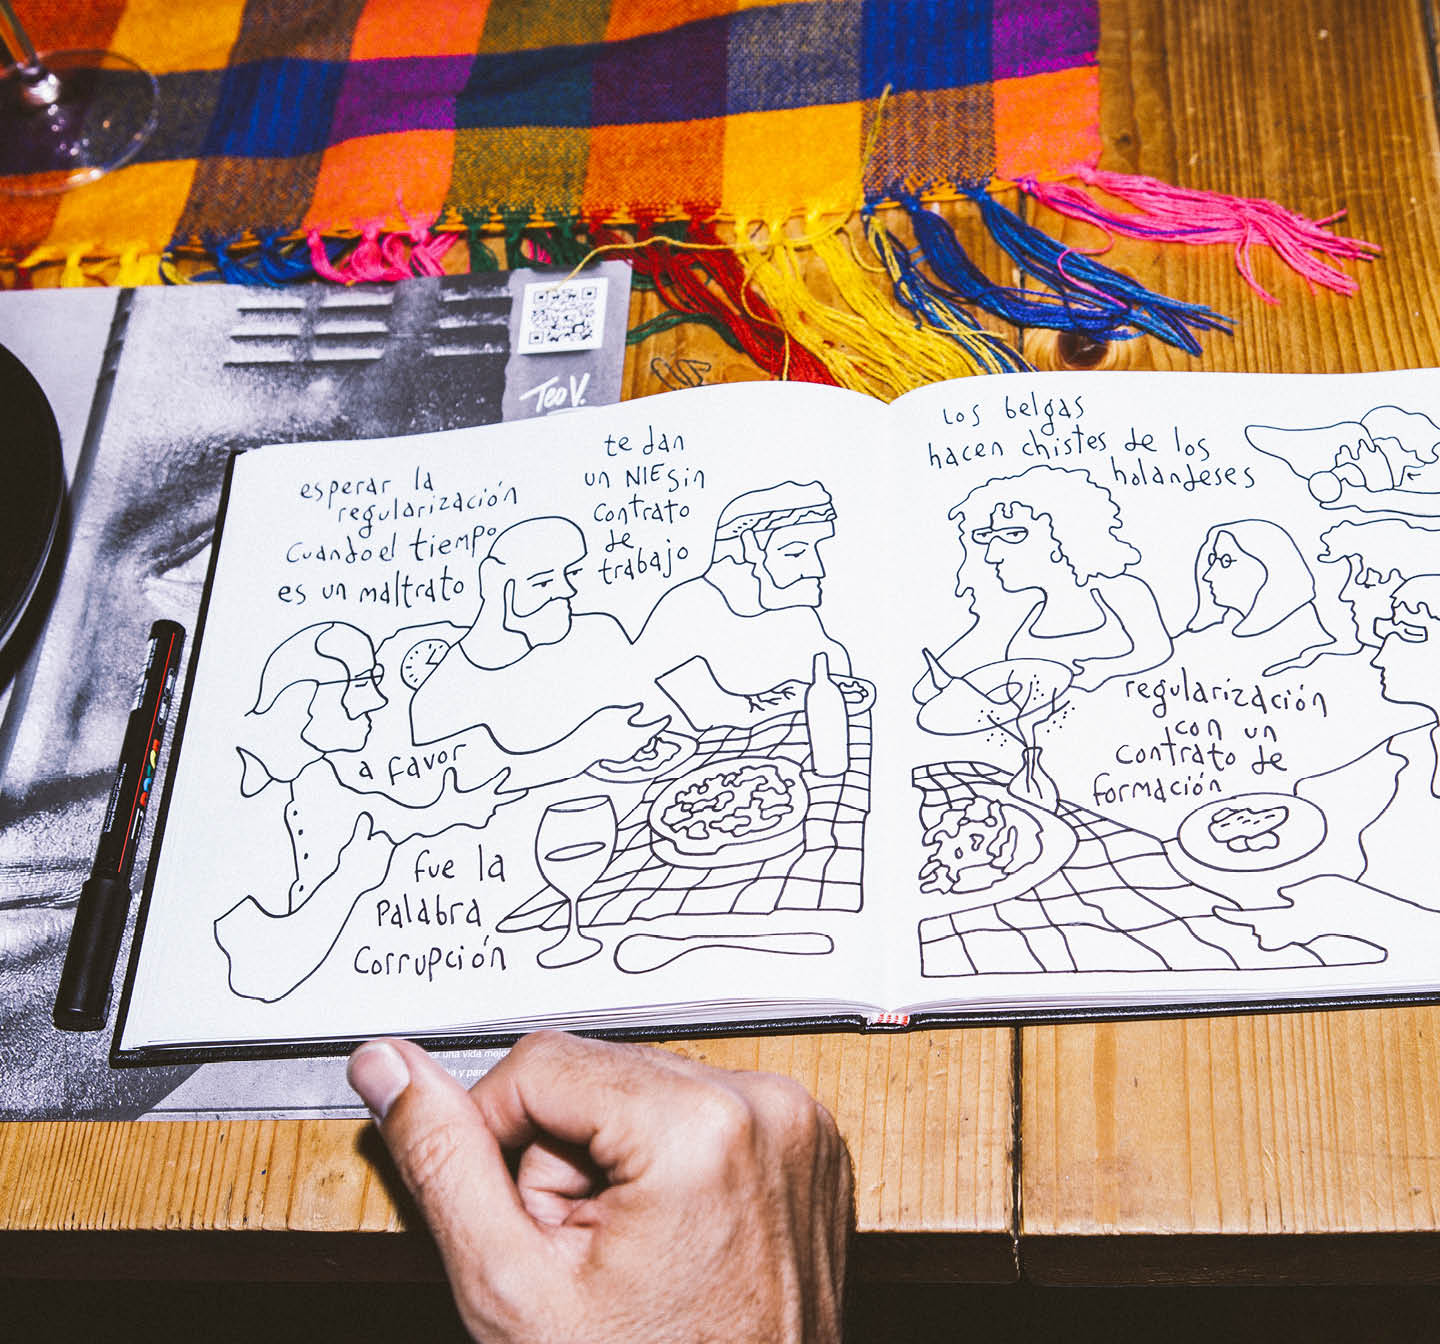 Teo V.
esperar la
regularización
cuando el tiempo
es un maltrato
te dan
un NIE sin
contrato
de
trabajo
a favor
fue la
palabra
corrupción
los belgas
hacen chistes de los
holandeses
regularización
con un
contrato de
formación
or una vida mejo
a y para